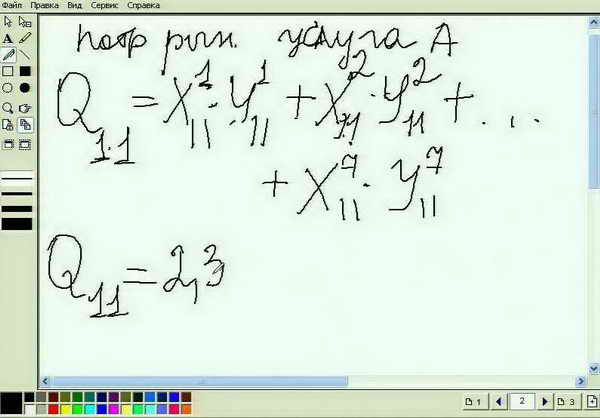 Файл Правка Вид Сервис Справка
потр рын. услуга А
Q₁.₁ = X¹₁₁ · Y¹₁₁ + X²₁₁ · Y²₁₁ + ...
+ X⁷₁₁ · Y⁷₁₁
Q₁₁ = 2,3
1 2 3